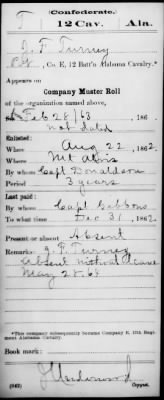 (Confederate.)
T 12 Cav. Ala.
J. F. Turney
Pvt, Co. E, 12 Batt'n Alabama Cavalry.*
Appears on
Company Muster Roll
of the organization named above,
for Feb 28/63, 186
not dated
Enlisted:
When Aug 22, 1862.
Where Mt Alvis
By whom Capt Donaldson
Period 3 years
Last paid:
By whom Capt Gibbons
To what time Dec 31, 1862.
Present or absent Absent
Remarks: J. F. Turney
Absent without leave
May 28. 63
*This company subsequently became Company E, 12th Regiment Alabama Cavalry.
Book mark:
J Underwood
(642) Copyist.